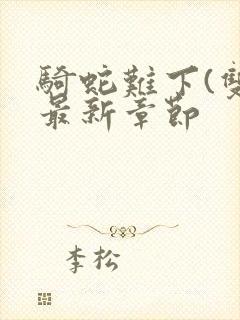 騎蛇難下(雙
最新章節
李松